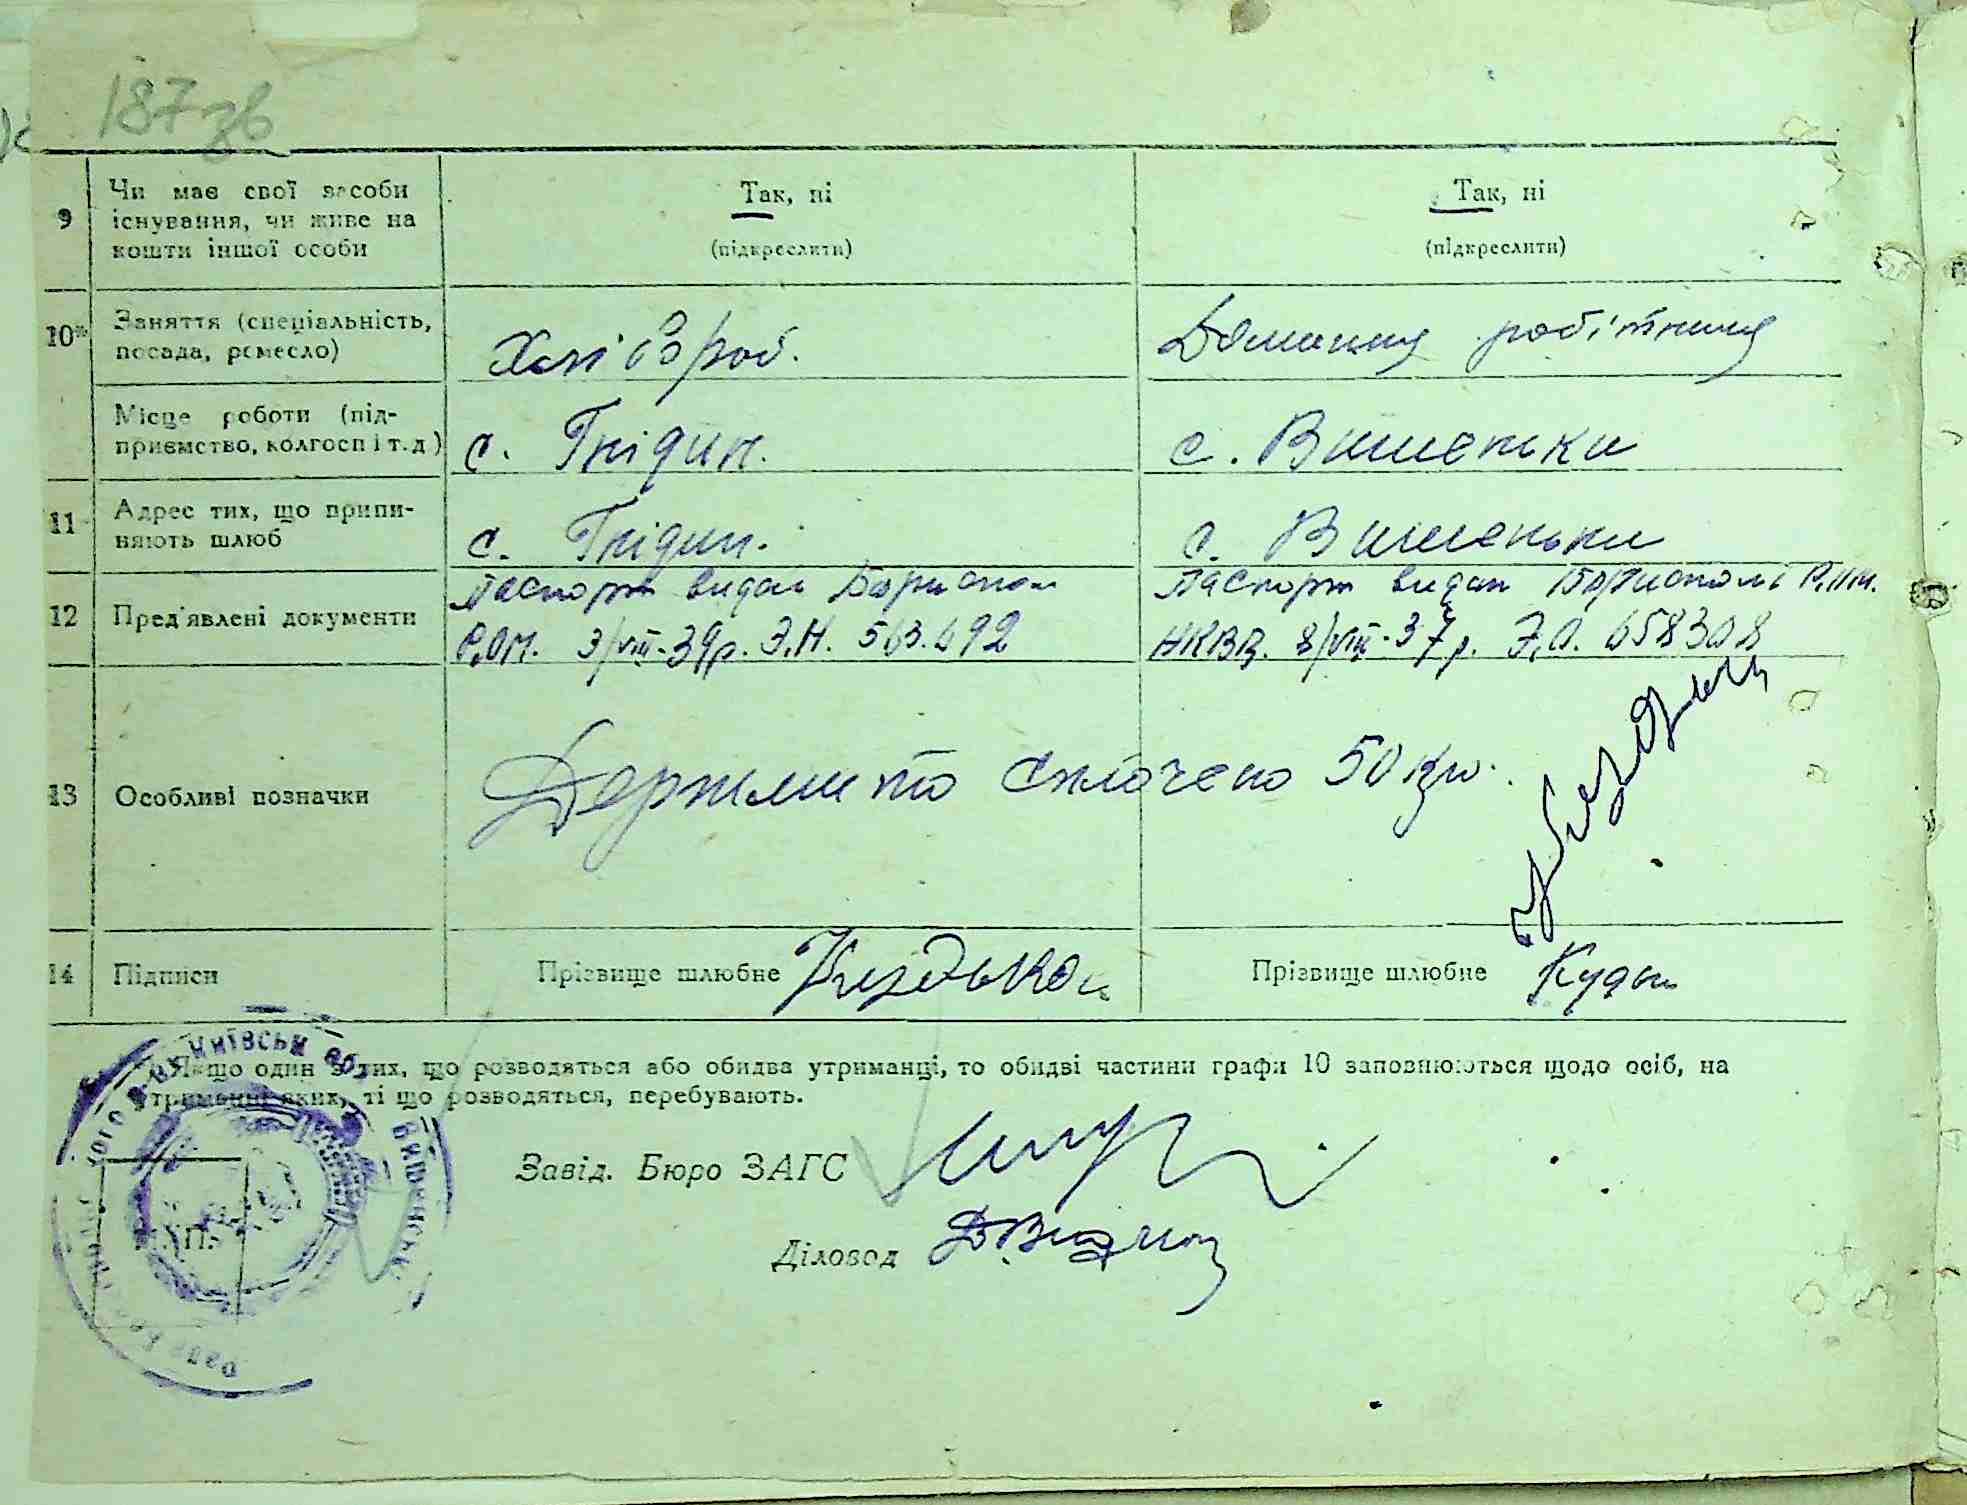 187 зв
9 Чи має свої засоби існування, чи живе на кошти іншої особи
Так, ні
(підкреслити)
Так, ні
(підкреслити)
10* Заняття (спеціальність, посада, ремесло)
Хлібороб.
Домашня робітниця
Місце роботи (підприємство, колгосп і т.д)
с. Гнідин.
с. Вишеньки
11 Адрес тих, що припиняють шлюб
с. Гнідин.
с. Вишеньки
12 Пред'явлені документи
Паспорт видан Бориспол
Р.О.М. 3/VIII-39р. Э.Н. 563.692
Паспорт видан Бориспол
НКВД. 8/VIII-37р. 658308
13 Особливі позначки
Держмито сплочено 50 крб.
14 Підписи
Прізвище шлюбне
Прізвище шлюбне
Якщо один з тих, що розводяться або обидва утриманці, то обидві частини графи 10 заповнюються щодо осіб, на
утриманні яких, ті що розводяться, перебувають.
Завід. Бюро ЗАГС
Діловод
М.П.